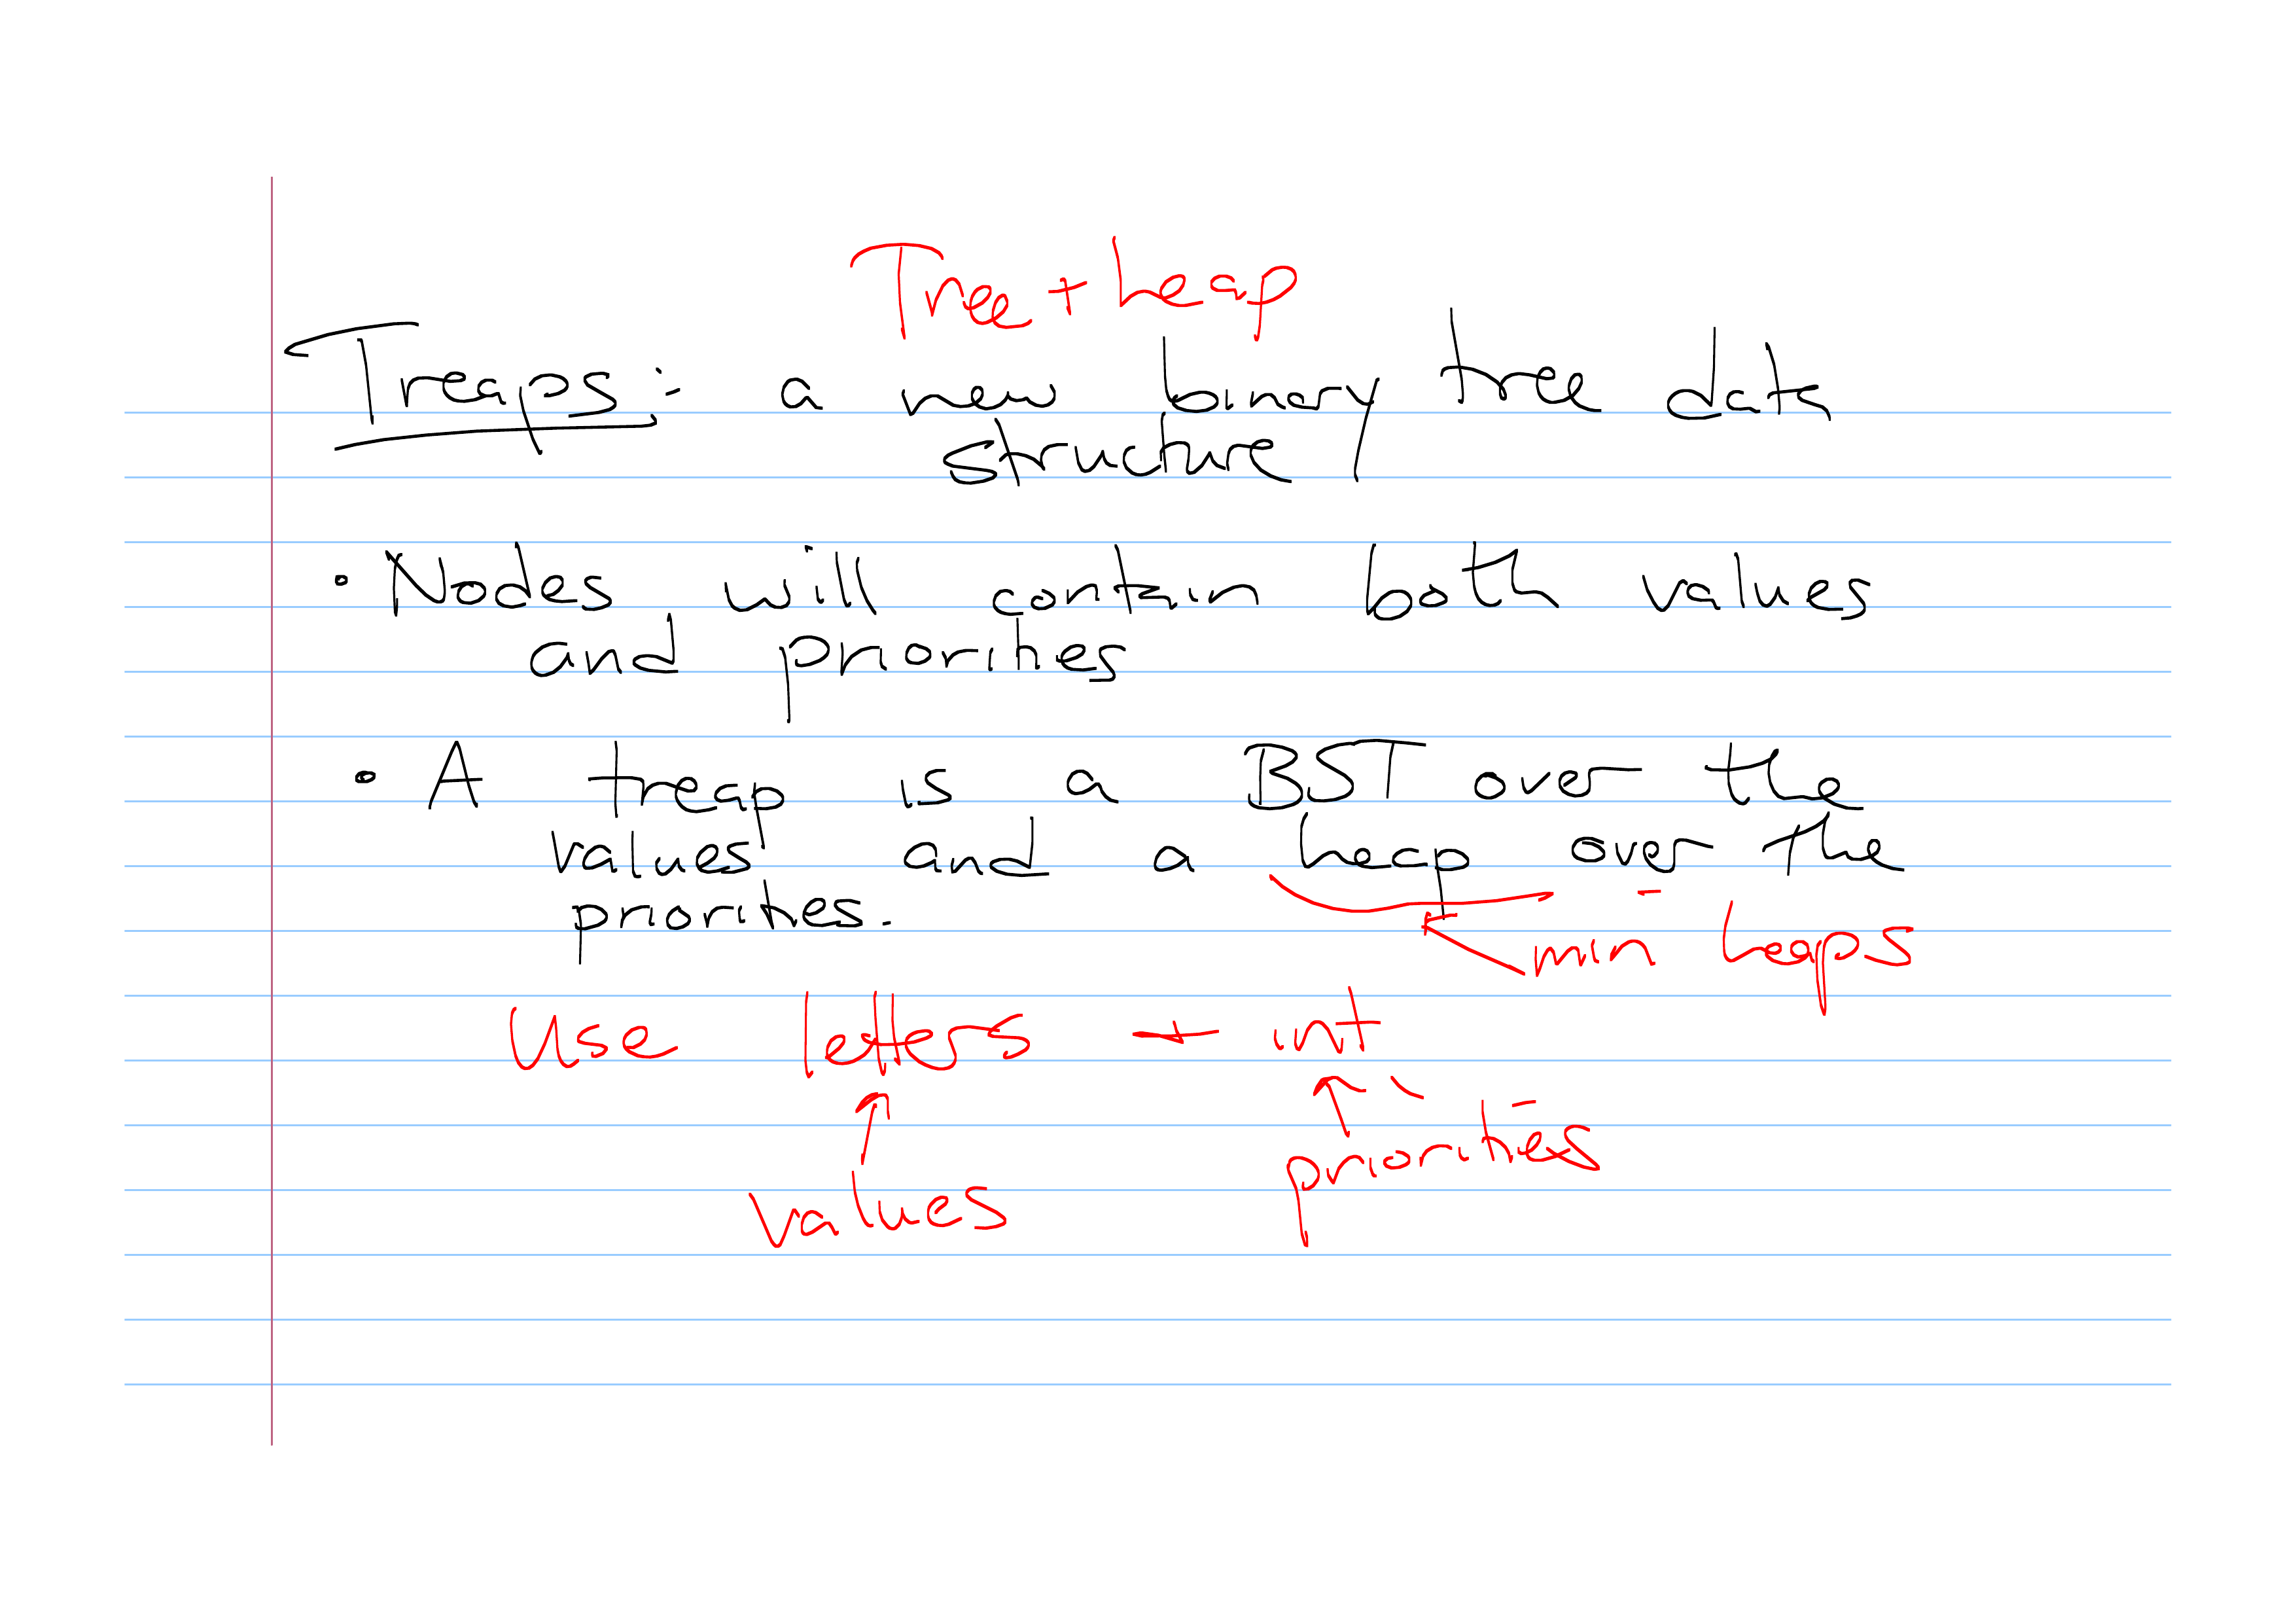 Tree + heap
Treaps: a new binary tree data
structure
• Nodes will contain both values
and priorities
• A treap is a BST over the
values and a heap over the
priorities.
min heaps
Use letters + int
priorities
values